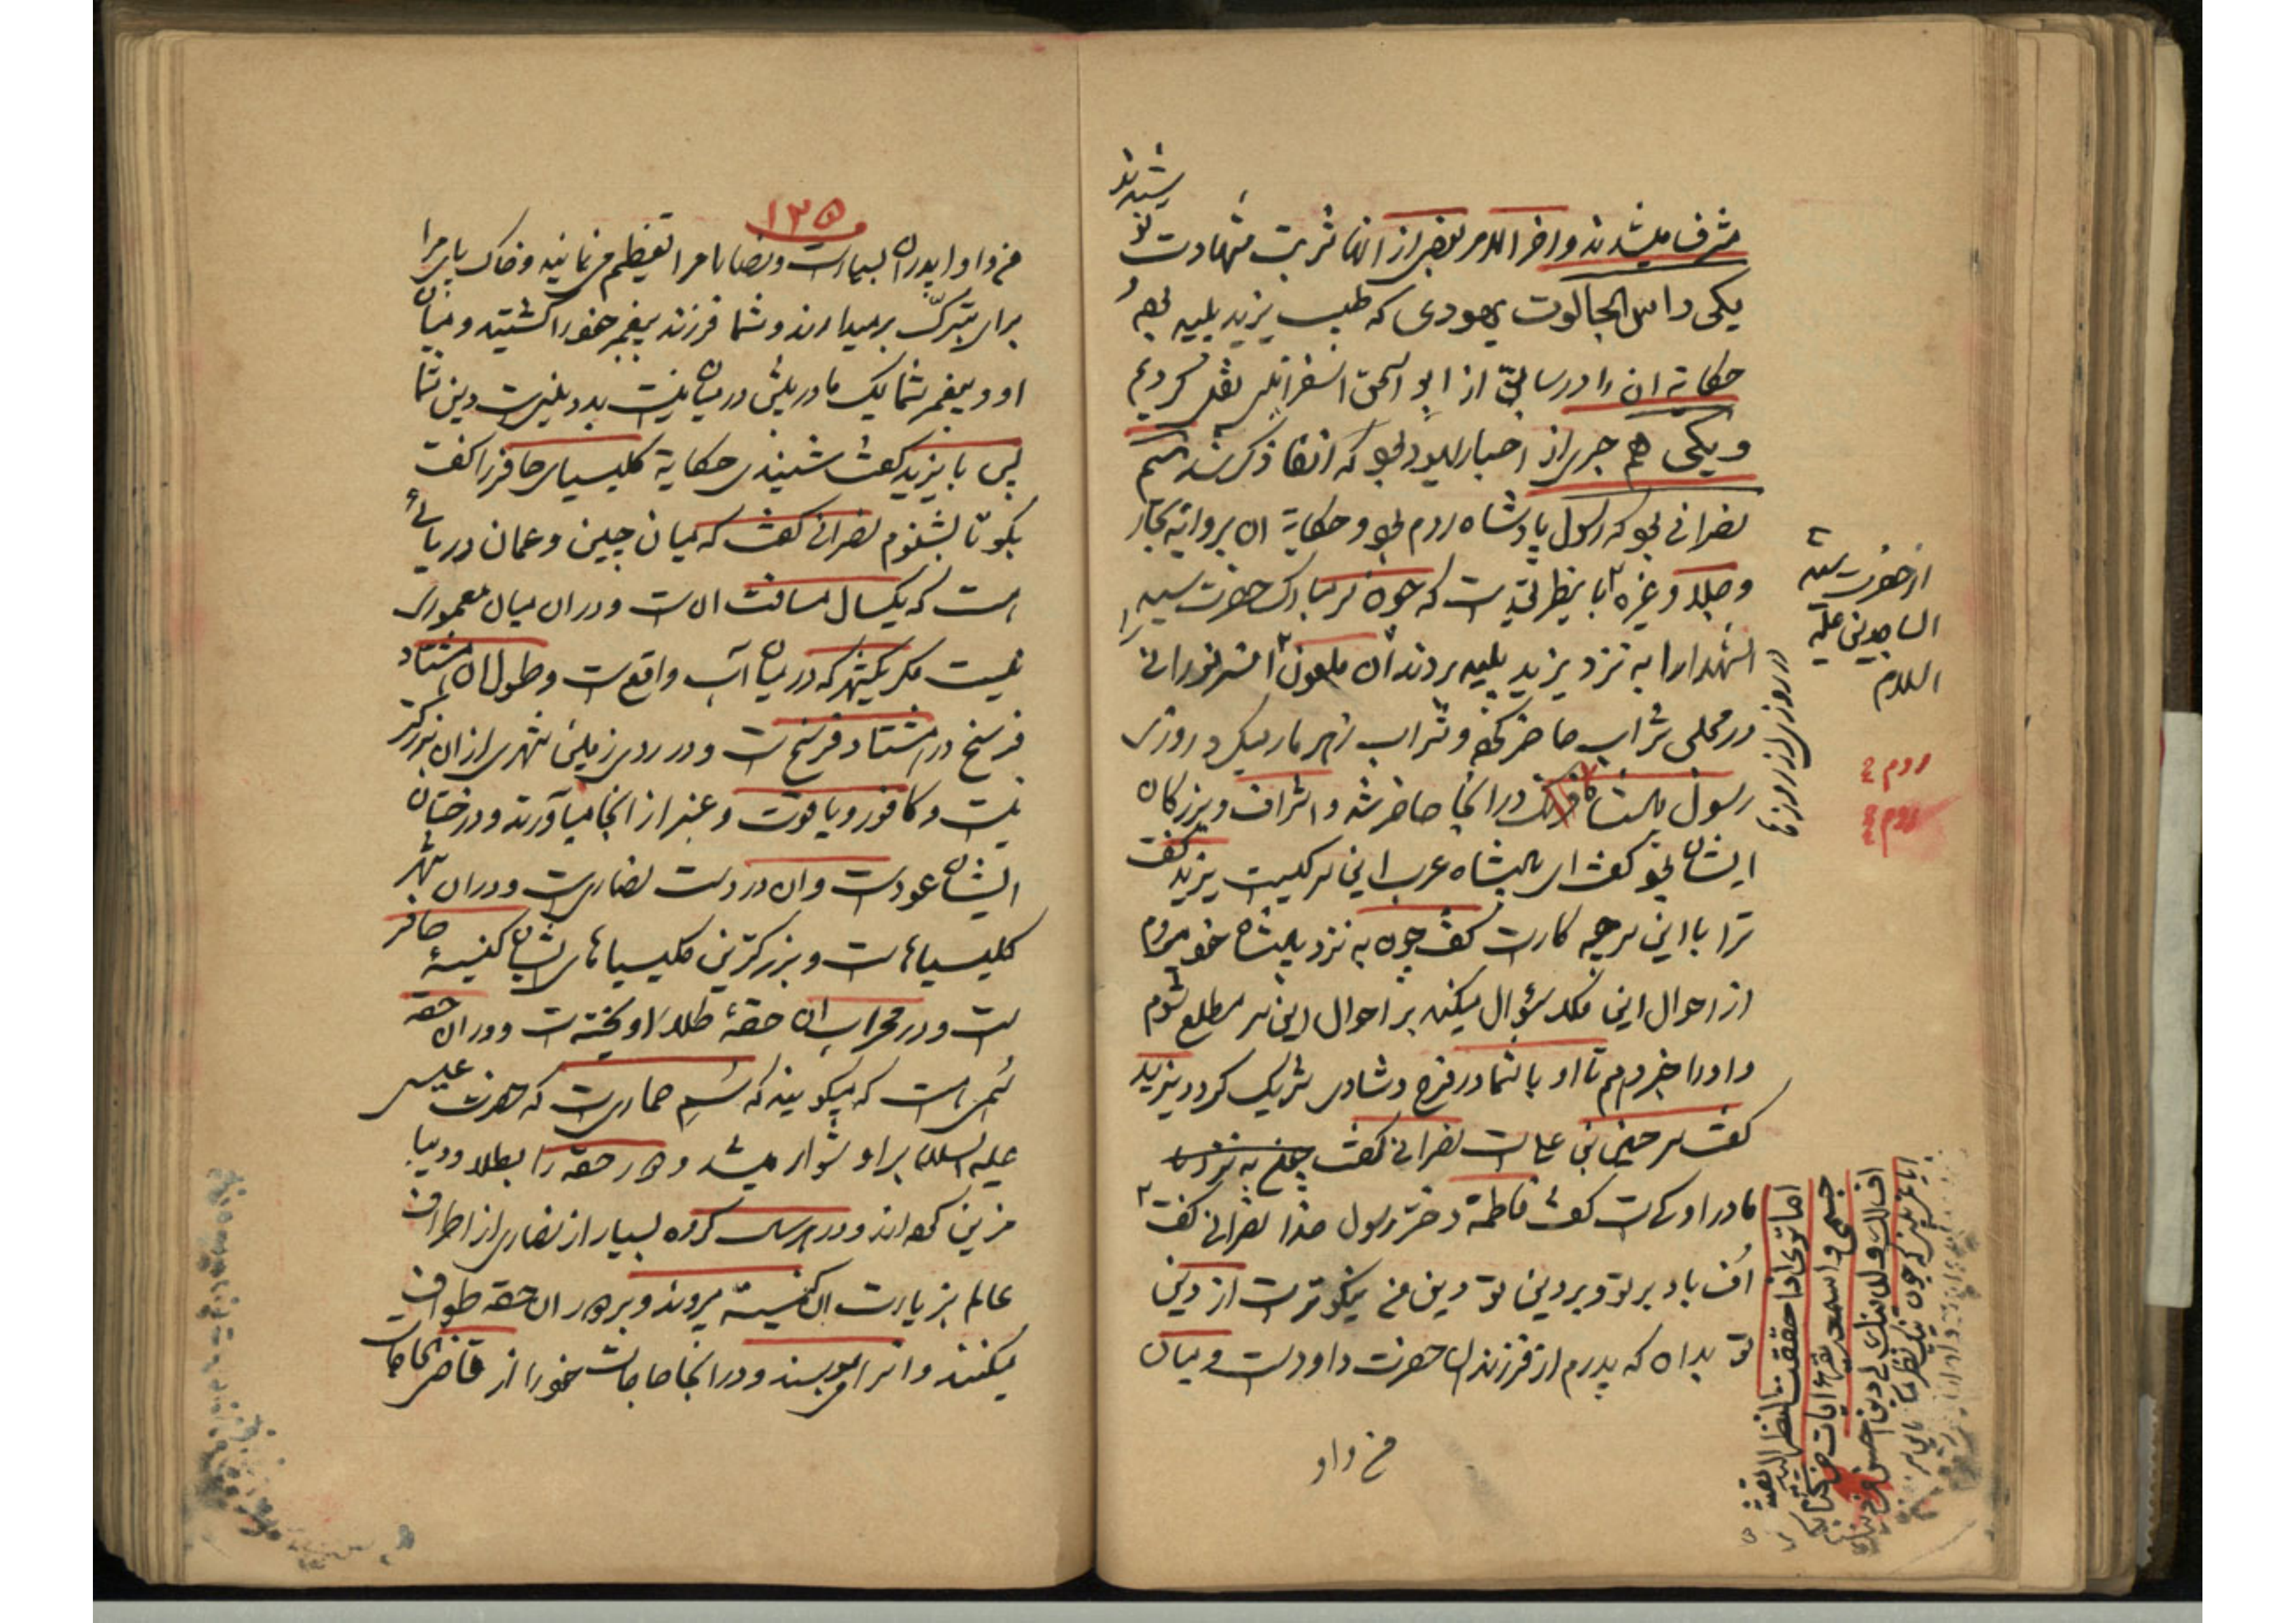 مشرف میشدند و اخر الامر بعضی از انها شربت شهادت نو
شیدند
یکی راس الجالوت یهودی که طبیب یزید پلید بود و
حکایة ان را در سابق از ابو اسحق اسفراینی نقل کردیم
و یکی هم حبری از احبار یهود بود که انفا ذکر شد سیم
نصرانی بود که رسول پادشاه روم بود و حکایة ان بروایة بحار
و جلاء و غیره ما باینطریق است که چون سر مبارک حضرت سید
الشهدا را به نزد یزید پلید بردند ان ملعون ان سر نورانی را
در مجلس شراب حاضر کرده و شراب زهرمار میکرد روزی
رسول پادشاه فرنک در انجا حاضر شد و اشراف و بزرکان
ایشان بود کفت ای پادشاه عرب این سر کیست یزید کفت
ترا با این سر چه کار است کفت چون به نزد پادشاه خود میروم
از احوال این ملک سؤال میکند بر احوال این سر مطلع شوم
و او را خبر دهم تا او با شما در فرح و شادی شریک کردد یزید
کفت سر حسین بن علی است نصرانی کفت
مادر او کیست کفت فاطمة دختر رسول خدا نصرانی کفت
اف باد بر تو و بر دین تو دین من نیکوتر است از دین
تو بدان که پدرم از فرزندان حضرت داود است و میان
من و او
از حضرت سید
الساجدین علیه
السلام
در روزی از روزها
روم
روم
۱۳۵
من و او پدران بسیار است و نصارا مرا تعظیم می نمایند و خاک پای مرا
برای تبرک بر میدارند و شما فرزند پیغمبر خود را کشتید و میان
او و پیغمبر شما یک مادر بیش در میان نیست بد دینیست دین شما
پس با یزید کفت شنیدی حکایة کلیسیای حافر را کفت
بکو تا بشنوم نصرانی کفت که میان چین و عمان دریائی
است که یکسال مسافت ان است و در ان میان معموری
نیست مکر یکشهر که در میان آب واقع است و طول ان هشتاد
فرسخ در هشتاد فرسخ است و در روی زمین شهری از ان بزرکتر
نیست و کافور و یاقوت و عنبر از انجا میآورند و درختان
ایشان عود است و ان در دست نصاری است و در ان شهر
کلیسیاها است و بزرکترین کلیسیاهای ایشان کنیسهٔ حافر
است و در محراب ان حقهٔ طلا اویخته است و در ان حقه
سمی است که میکویند که سم حماری است که حضرت عیسی
علیه السلام براو سوار میشد و دور حقه را بطلا و دیبا
مزین کرده اند و در هر سال کروه بسیار از نصاری از اطراف
عالم بزیارت ان کنیسة میروند و بر دور ان حقه طواف
میکنند و انرا میبوسند و در انجا حاجات خود را از قاضی الحاجات